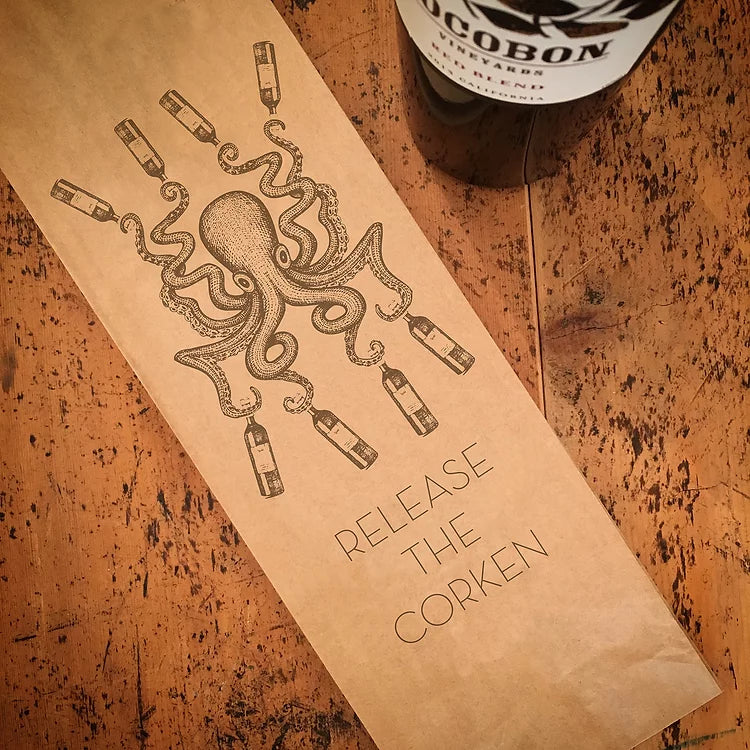 OCOBON
VINEYARDS
RED BLEND
CALIFORNIA
RELEASE
THE
CORKEN